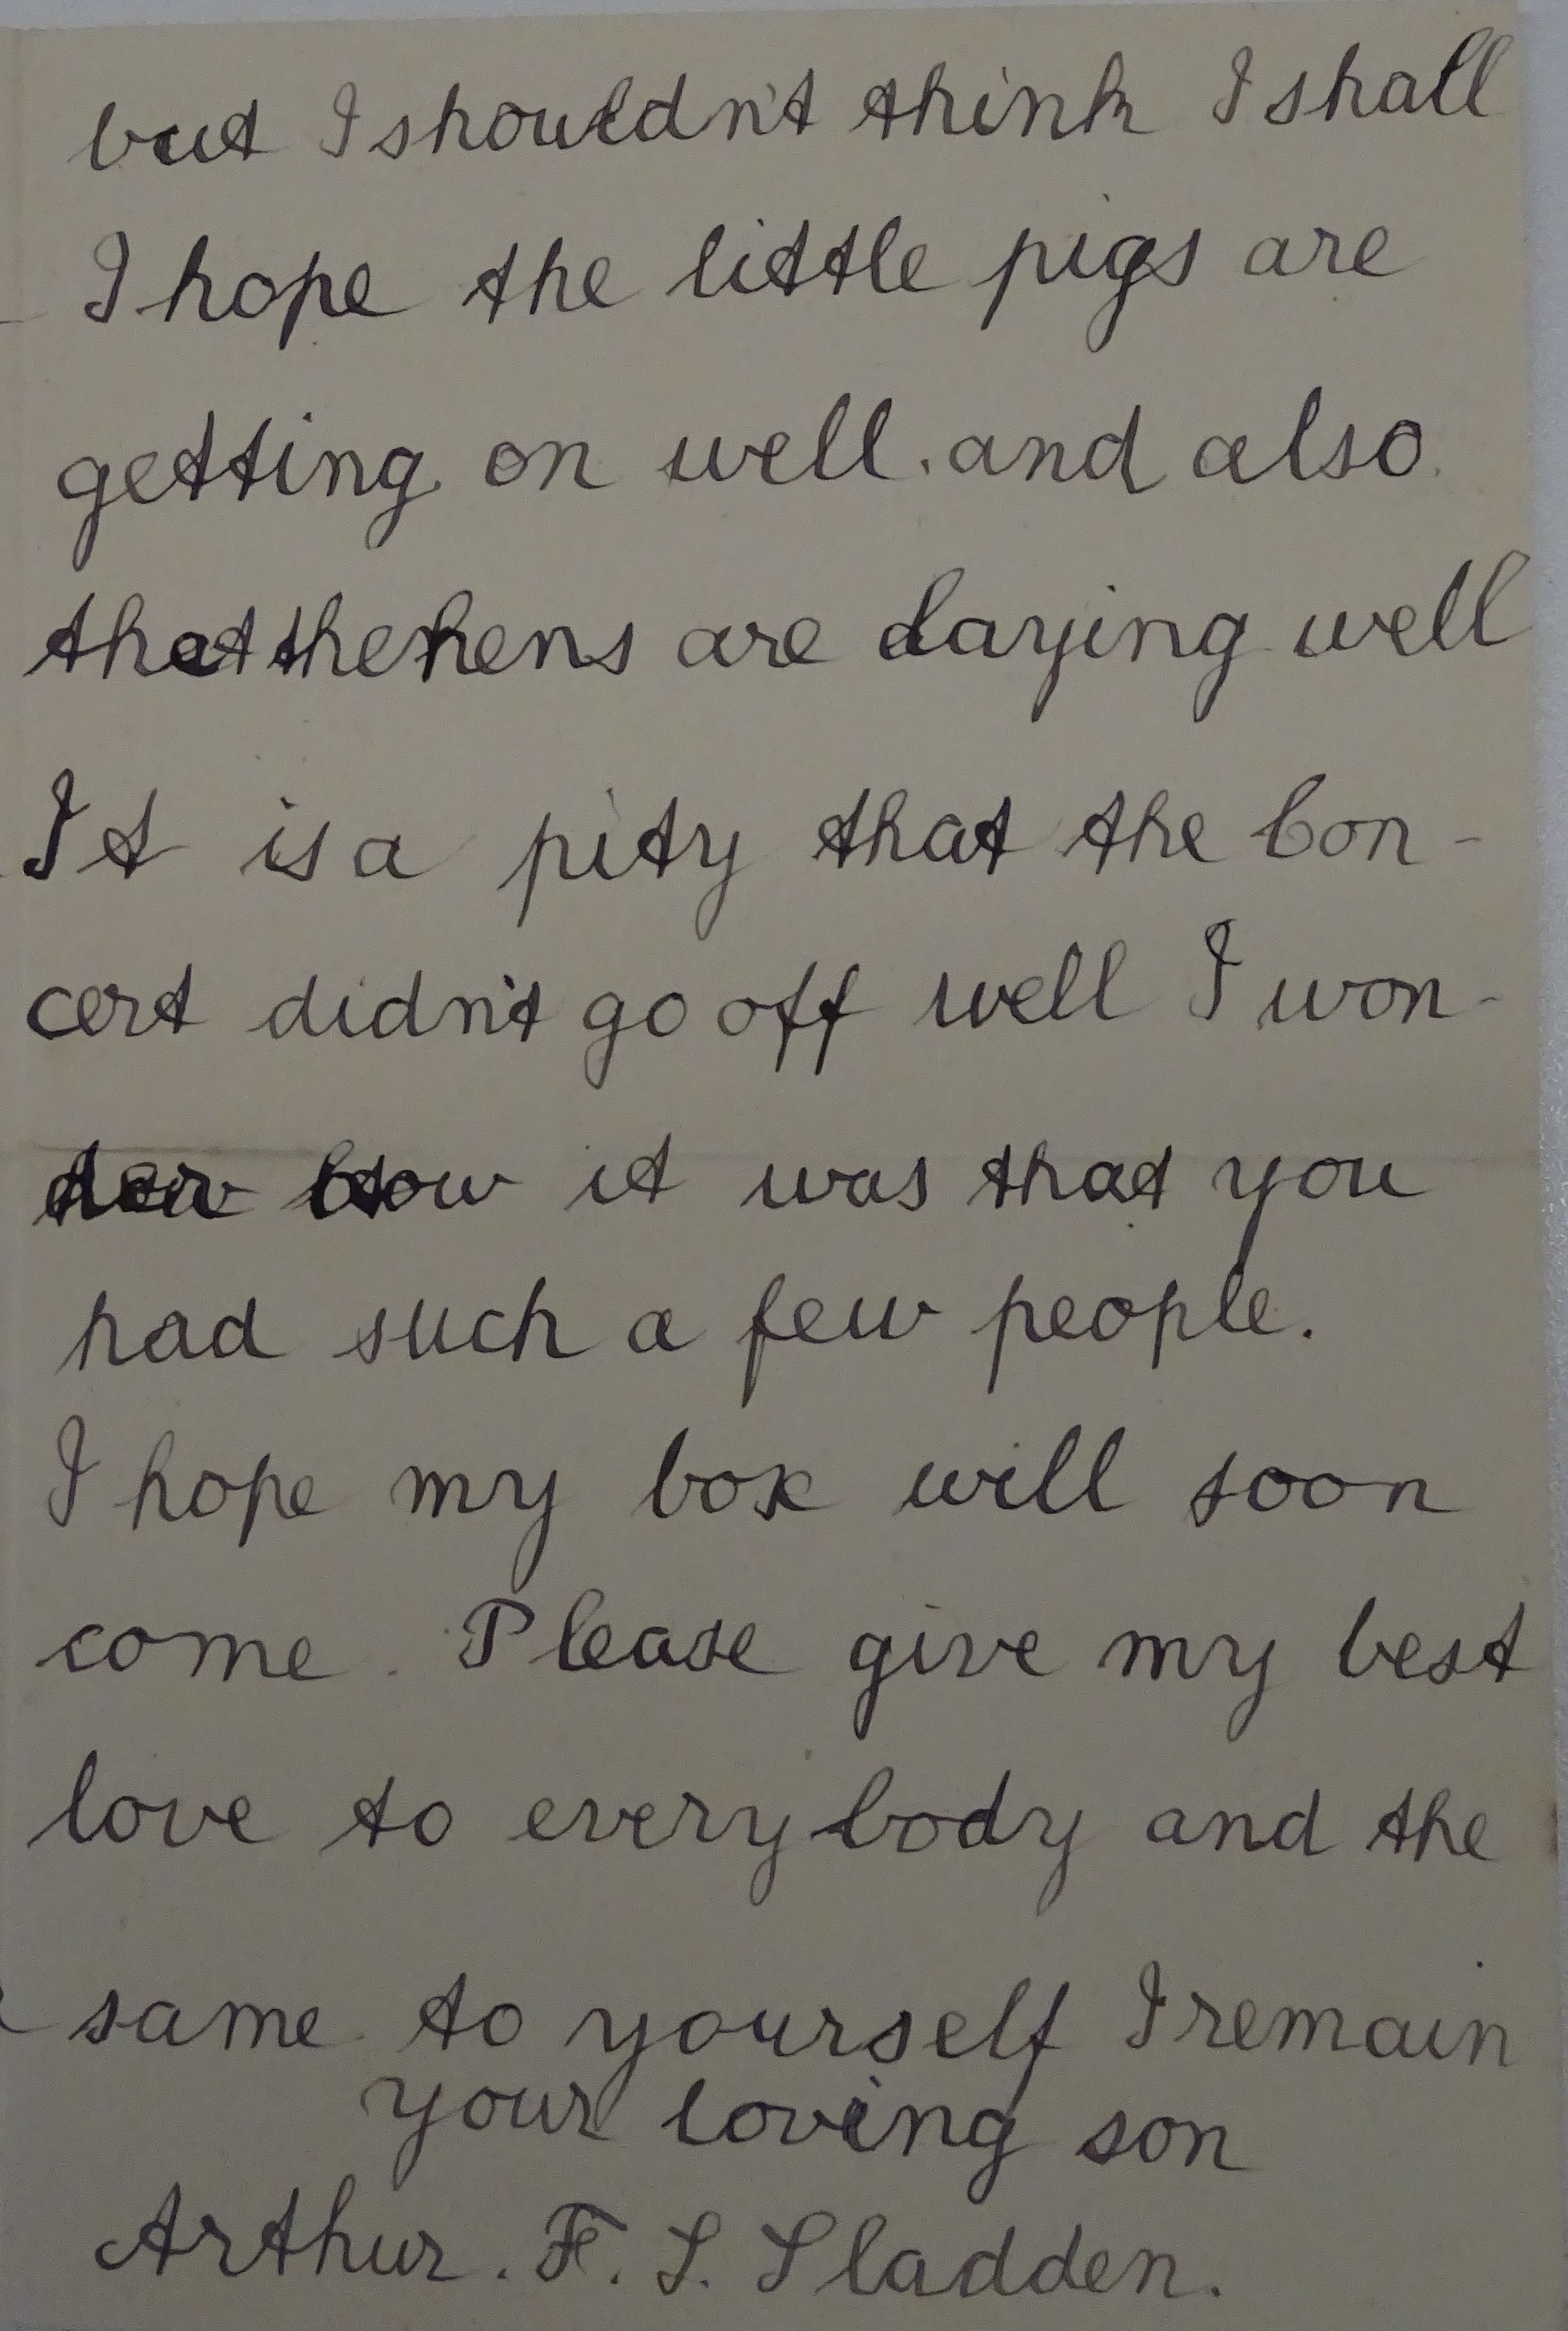 but I shouldn't think I shall
I hope the little pigs are
getting on well. and also
that the hens are laying well
It is a pity that the Con-
cert didn't go off well I won-
der how it was that you
had such a few people.
I hope my box will soon
come. Please give my best
love to everybody and the
same to yourself I remain
your loving son
Arthur. F. S. Sladden.